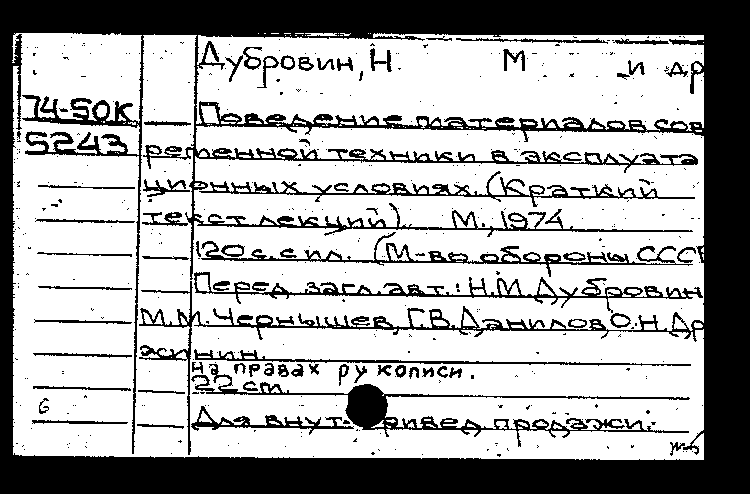 Дубровин, Н. М и др
74-50К Поведение материалов сов
5243 ременной техники в эксплуата
ционных условиях. (Краткий
текст лекций). М., 1974.
120 с. с ил. (М-во обороны СССР
Перед загл. авт.: Н.М. Дубровин
М.М. Чернышев, Г.В. Данилов, О.Н. Др
на правах рукописи.
22 см.
6 Для внут. продажи.